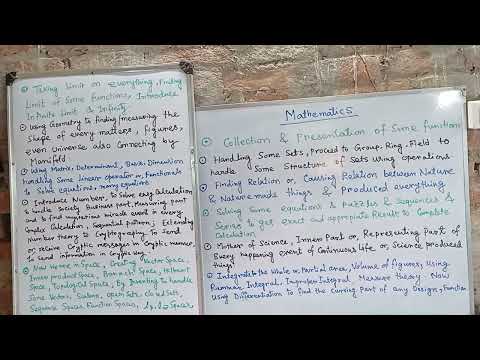 Taking Limit on everything, Finding
Limit of Some functions, Introduce
Infinite Limit & Infinity.
Using Geometry to finding/measuring the
Shape of every matters, figures,
even Universe also Connecting by
Manifold
Using Matrix, Determinant, Basis, Dimension
handling Some linear operator or, Functionals
& Solve equations, many equations
Introduce Number, To Solve easy Calculation
& handle Society Business part, Measuring part
and to find numerious miracle event in every
Complex Calculation, Sequential pattern, Extending
Number theory to Cryptography. To Send
or receive Cryptic messages in Cryptic manner,
To Send information in Cryptic way
New Home in Space, Creating Vector Space,
Inner product Space, Banach Space, Hilbert
Space, Topological Space, by Inventing to handle
Some Vectors, Systems, Open Sets, Closed Sets,
Sequence Spaces, Function Spaces, Spaces
Mathematics
Collection & Presentation of Some functions
Handling Some Sets, Proceed to Group, Ring, Field to
handle Some Structure of Sets using operations.
Finding Relation or, Causing Relation between Nature
& Nature made things & Produced everything
Solving Some equations & Puzzles & Sequences &
Series to get exact and appropriate Result to Complete
Calculation.
Mother of Science, Innern Part or, Representing Part of
Every happening event of Continuous life or, Science produced
things
Integrate the Whole or Partial area, Volume of figures, Using
Riemann Integral, Improper Integral Measure theory. Now
Using Differentiation to find the Curving Part of any Design, Function